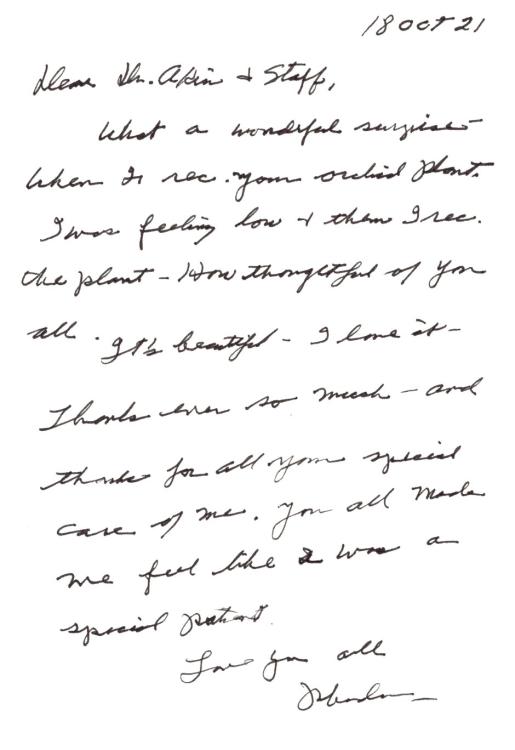 18 Oct 21
Dear Dr. Akin & Staff,
What a wonderful surprise
When I rec. your orchid plant.
I was feeling low & then I rec.
the plant - How thoughtful of you
all. It's beautiful - I love it -
Thanks ever so much - and
thanks for all your special
care of me. You all made
me feel like I was a
special patient.
Love you all